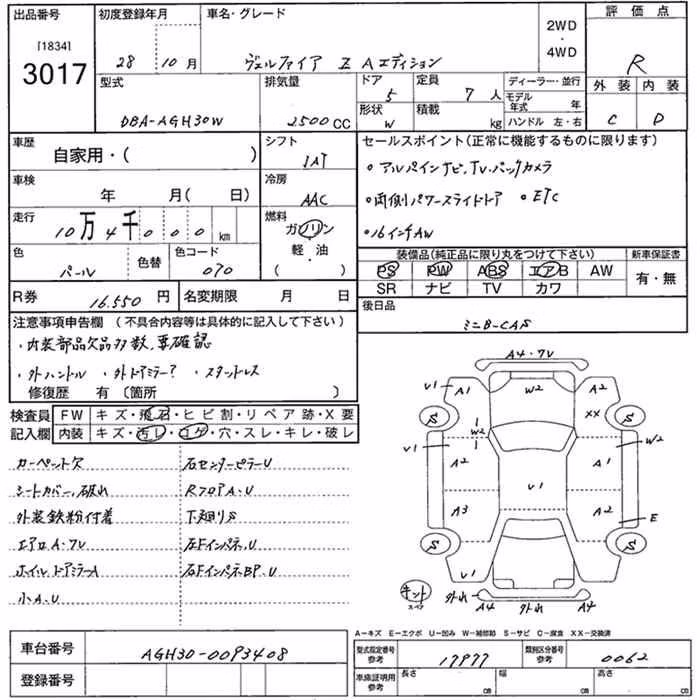 出品番号 初度登録年月 車名・グレード 2WD・4WD 評価点
[1834]
3017
28 10月 ヴェルファイア Z Aエディション R
型式 排気量 ドア 定員 ディーラー・並行 外装 内装
DBA-AGH30W 2500CC 5 7人 モデル年式 年 C D
形状 W 積載 kg ハンドル 左・右
車歴 自家用・( ) シフト IAT セールスポイント(正常に機能するものに限ります)
・アルパインナビ、TV、バックカメラ
車検 年 月( 日) 冷房 AAC
・両側パワースライドドア ・ETC
走行 10万4千000km 燃料 ガソリン・軽・油 ( )
・16インチAW
色 パール 色替 色コード 070
装備品(純正品に限り丸をつけて下さい) 新車保証書
PS PW ABS エアB AW 有・無
SR ナビ TV カワ
R券 16.550円 名変期限 月 日
後日品 ミニB-CAS
注意事項申告欄 (不具合内容等は具体的に記入して下さい)
・内装部品欠品多数、要確認
・外ハンドル ・外ドアミラー? ・スタッドレス
修復歴 有〔箇所 〕
検査員記入欄 FW キズ・飛石・ヒビ割・リペア跡・X要
内装 キズ・汚レ・コゲ・穴・スレ・キレ・破レ
カーペット欠 右センターピラーU
シートカバー、破れ RフロアA・U
外装鉄粉付着 下廻りS
エアロA・7V 左FインパネU
ホイルドアミラーA 右FインパネBP、U
小A、U
A4・7V
V1 A1 W2 A2
S XX S
V1 W2 W2
A2 A1
V1
A3 A2
E
S S
V1
キント
スペア
外れ A4 外れ A4
A-キズ E-エクボ U-凹み W-補修跡 S-サビ C-腐食 XX-交換済
車台番号 AGH30-0093408
型式指定番号 参考 17977 類別区分番号 参考 0062
登録番号
車庫証明用 参考 長さ cm 幅 cm 高さ cm